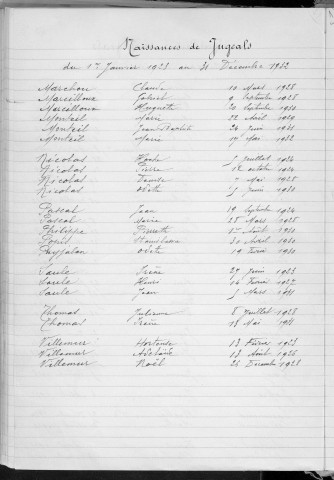 Naissances de Jugeals
du 1er Janvier 1923 au 31 Décembre 1932
Marchou Claude 10 Mars 1928
Marcilloux Gabriel 9 Septembre 1928
Marcilloux Huguette 20 Septembre 1930
Monteil Marie 22 Août 1929
Monteil Jean Baptiste 20 Juin 1931
Monteil Marie 14 Mai 1932
Nicolas 5 Juillet 1924
Nicolas Pierre 18 Octobre 1924
Nicolas Mai 1928
Nicolas Odette 25 Juin 1930
Pascal Jean 19 Septembre 1924
Pascal Marie 28 Mars 1928
Philippe Pierrette Août 1930
Stanislawa 30 Avril 1930
Puyjalon Odette 19 Février 1930
Saule Irène 29 Juin 1923
Saule Henri 16 Février 1927
Saule Jean 5 Mars 1931
Thomas Julienne 8 Juillet 1928
Thomas Irène 18 Mai 1931
Villemur Hortense 13 Février 1923
Villemur Adelaïde 13 Août 1926
Villemur Noël 25 Décembre 1928